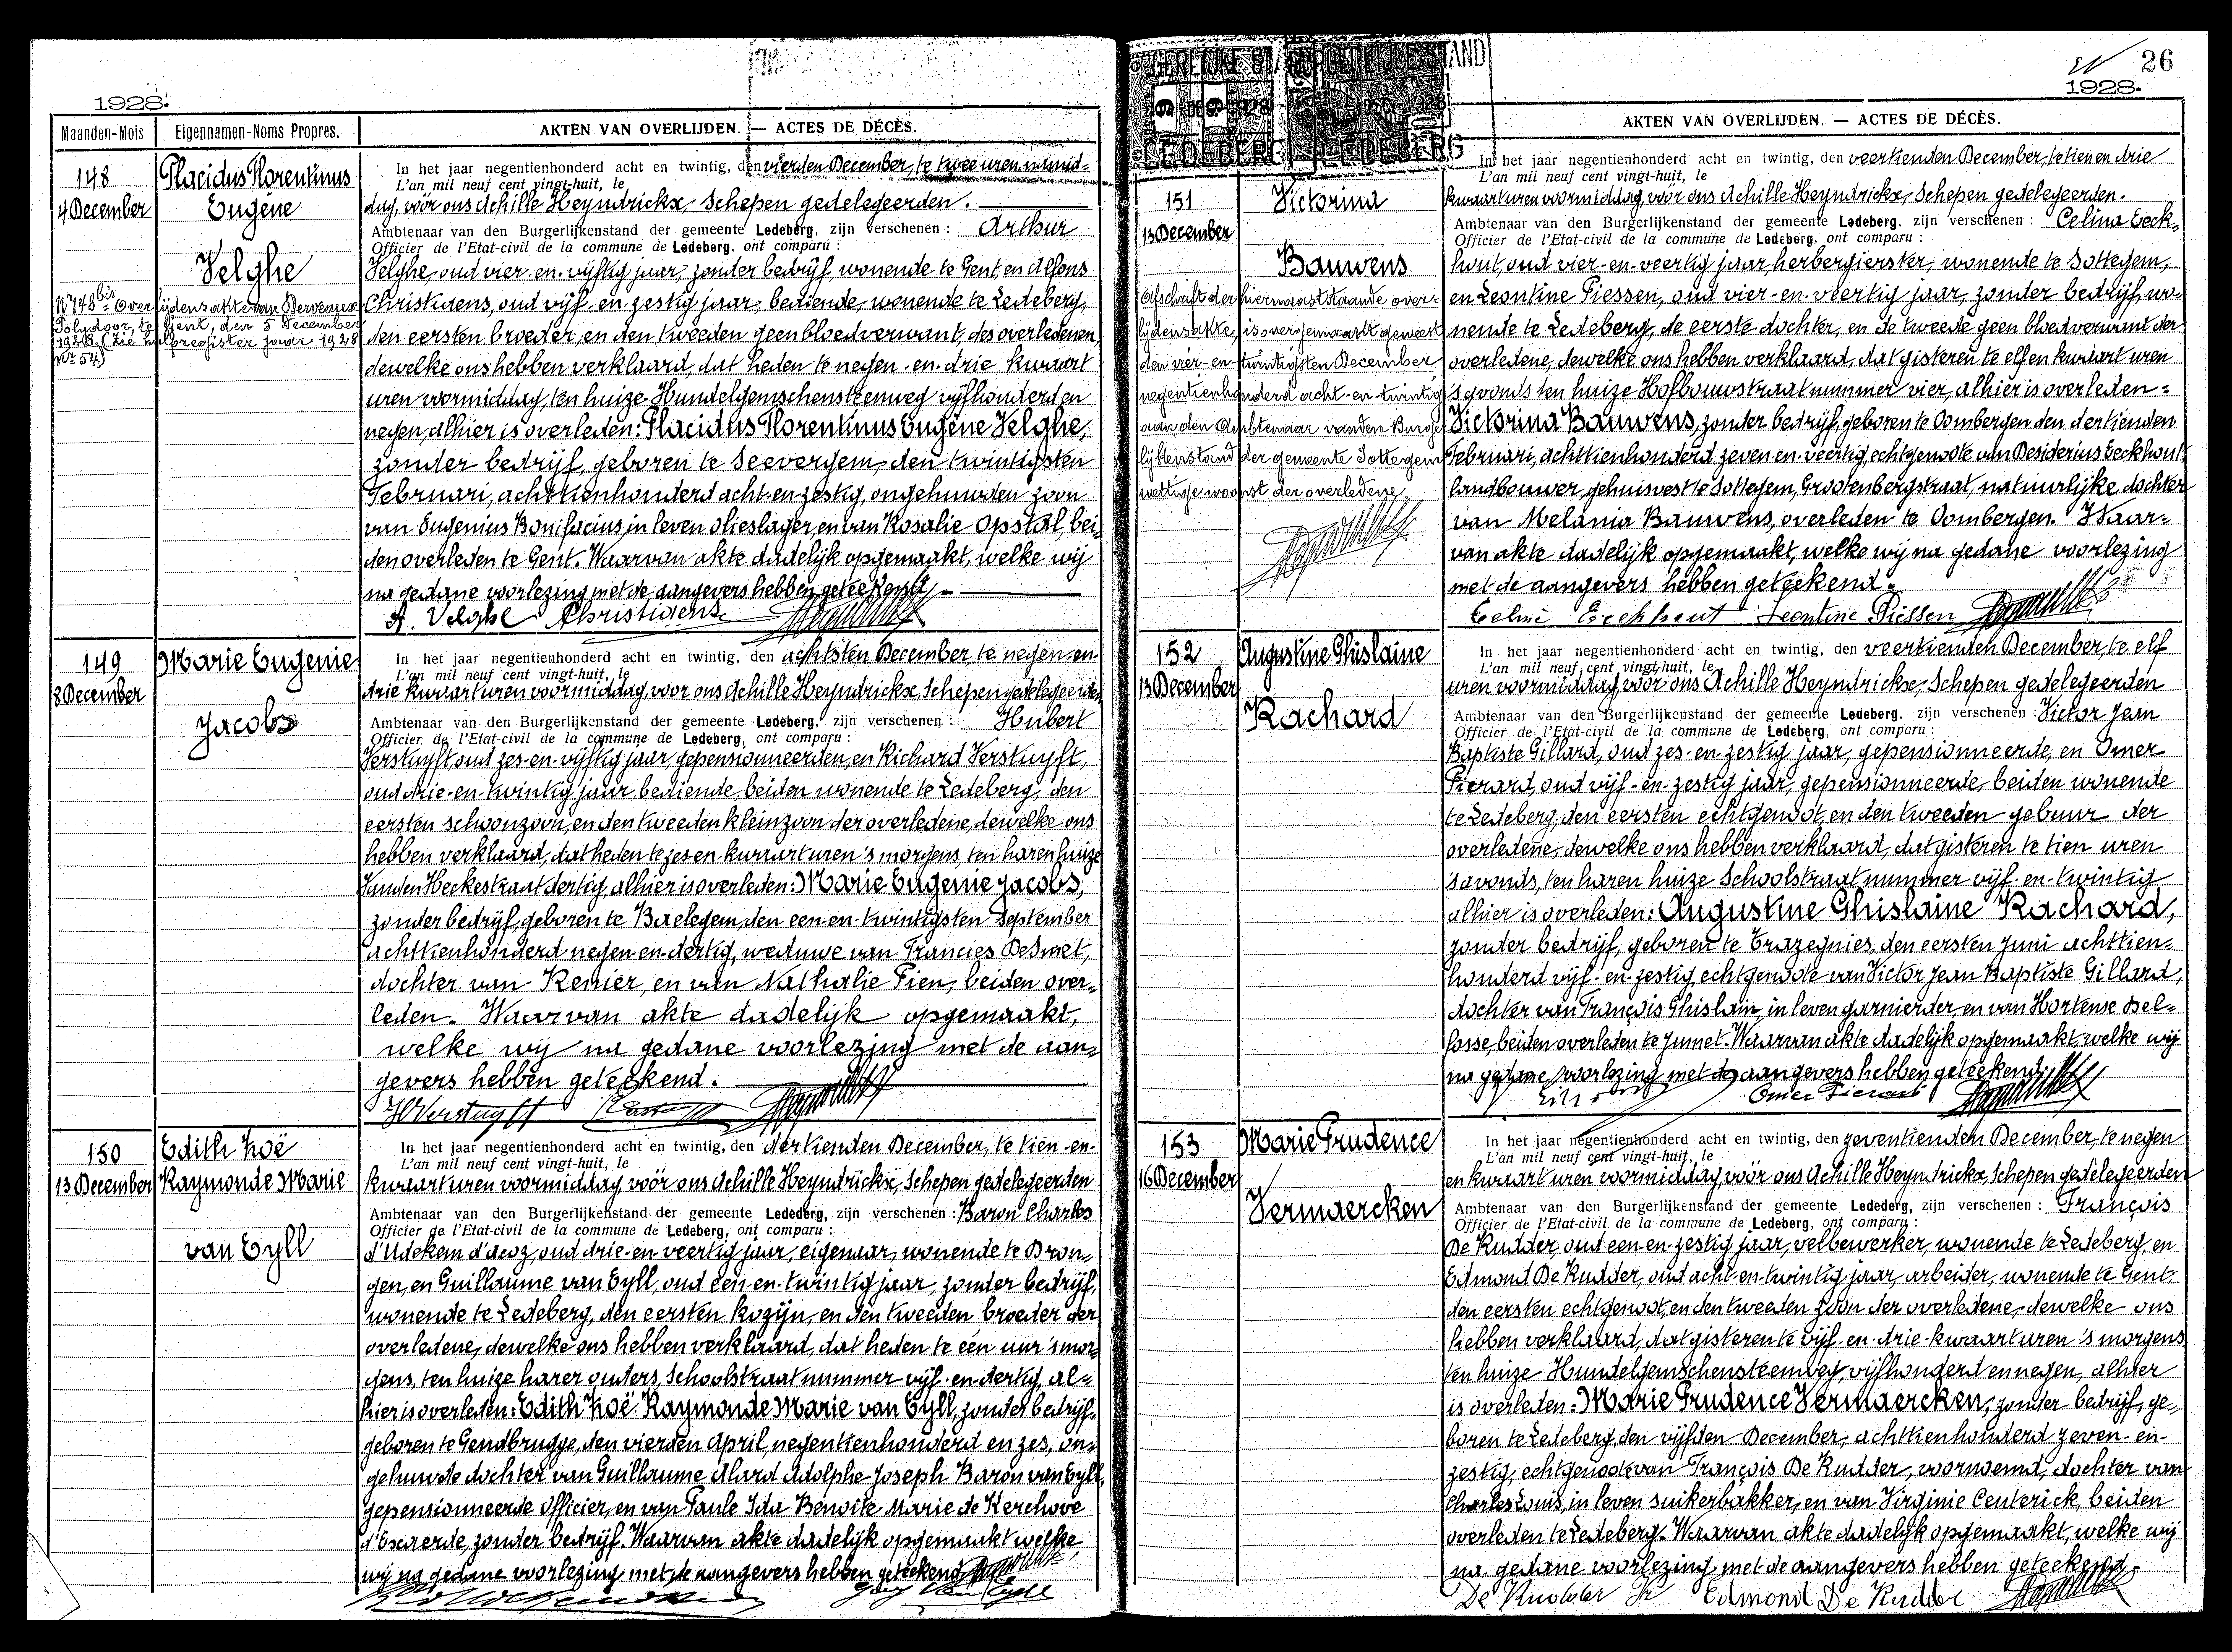 1928.
Maanden-Mois
Eigennamen-Noms Propres.
AKTEN VAN OVERLIJDEN. — ACTES DE DÉCÈS.
148
4 December
Placidus Florentinus
Eugène
Velghe
Nr 148bis Overlijdensakte van
Polydoor, te Gent, den 5 December
1928. (Zie hulpregister jaar 1928
Nr 54)
In het jaar negentienhonderd acht en twintig, den vierden December, te twee uren namid=
L'an mil neuf cent vingt-huit, le
dag, vóór ons Achille Heyndrickx, Schepen gedelegeerden.
Ambtenaar van den Burgerlijkenstand der gemeente Ledeberg, zijn verschenen : Arthur
Officier de l'Etat-civil de la commune de Ledeberg, ont comparu :
Velghe, oud vier-en-vijftig jaar, zonder bedrijf, wonende te Gent en Alfons
Christiaens, oud vijf-en-zestig jaar, bediende, wonende te Ledeberg,
den eersten broeder, en den tweeden geen bloedverwant, des overledenen,
dewelke ons hebben verklaard, dat heden te negen-en-drie kwaart
uren voormiddag, ten huize Hundelgemschensteenweg vijfhonderd en
negen, alhier is overleden: Placidus Florentinus Eugène Velghe,
zonder bedrijf, geboren te Seevergem, den twintigsten
Februari, achttienhonderd acht-en-zestig, ongehuwden zoon
van Eugenius Bonifacius, in leven olieslager, en van Rosalie Opstal, bei=
den overleden te Gent. Waarvan akte dadelijk opgemaakt, welke wij
na gedane voorlezing met de aangevers hebben geteekend.
A. Velghe AChristiaens
149
8 December
Marie Eugenie
Jacobs
In het jaar negentienhonderd acht en twintig, den achtsten December, te negen-en-
L'an mil neuf cent vingt-huit, le
drie kwaart uren voormiddag, voor ons Achille Heyndrickx, Schepen gedelegeerden
Ambtenaar van den Burgerlijkenstand der gemeente Ledeberg, zijn verschenen : Hubert
Officier de l'Etat-civil de la commune de Ledeberg, ont comparu :
Verstuyft, oud zes-en-vijftig jaar, gepensionneerden, en Richard Verstuyft,
oud drie-en-twintig jaar, bediende, beiden wonende te Ledeberg, den
eersten schoonzoon, en den tweeden kleinzoon der overledene, dewelke ons
hebben verklaard, dat heden te zes-en-kwaart uren 's morgens, ten haren huize
Vanden Heckestraat dertig, alhier is overleden: Marie Eugenie Jacobs,
zonder bedrijf, geboren te Baelegem, den een-en-twintigsten September
achttienhonderd negen-en-dertig, weduwe van Francies DeSmet,
dochter van Renier, en van Nathalie Pien, beiden over=
leden. Waarvan akte dadelijk opgemaakt,
welke wij na gedane voorlezing met de aan=
gevers hebben geteekend.
HVerstuyft
150
13 December
Edith Zoë
Raymonde Marie
van Eyll
In het jaar negentienhonderd acht en twintig, den dertienden December, te tien-en-
L'an mil neuf cent vingt-huit, le
kwaart uren voormiddag, vóór ons Achille Heyndrickx, Schepen gedelegeerden
Ambtenaar van den Burgerlijkenstand der gemeente Ledeberg, zijn verschenen : Baron Charles
Officier de l'Etat-civil de la commune de Ledeberg, ont comparu :
d'Udekem d'Acoz, oud drie-en-veertig jaar, eigenaar, wonende te Dron=
gen, en Guillaume van Eyll, oud een-en-twintig jaar, zonder bedrijf,
wonende te Ledeberg, den eersten kozijn, en den tweeden broeder der
overledene, dewelke ons hebben verklaard, dat heden te één uur 's mor=
gens, ten huize harer ouders, Schoolstraat nummer vijf-en-dertig al=
hier is overleden: Edith Zoë Raymonde Marie van Eyll, zonder bedrijf,
geboren te Gendbrugge, den vierden April, negentienhonderd en zes, on=
gehuwde dochter van Guillaume Alard Adolphe Joseph Baron van Eyll,
gepensionneerde Officier, en van Paule Ida Benoite Marie de Kerchove
d'Exaerde, zonder bedrijf. Waarvan akte dadelijk opgemaakt welke
wij na gedane voorlezing met de aangevers hebben geteekend.
Guy van Eyll
26
1928.
BURGERLIJKE STAND
LEDEBERG
LEDEBERG
AKTEN VAN OVERLIJDEN. — ACTES DE DÉCÈS.
151
13 December
Victorina
Bauwens
Afschrift der hiernaaststaande over=
lijdensakte, is overgemaakt geweest
den vier-en-twintigsten December
negentienhonderd acht-en-twintig,
aan den Ambtenaar van den Burger
lijkenstand der gemeente Sottegem
wettige woonst der overledene.
In het jaar negentienhonderd acht en twintig, den veertienden December, te tien en drie
L'an mil neuf cent vingt-huit, le
kwaart uren voormiddag, vóór ons Achille Heyndrickx, Schepen gedelegeerden.
Ambtenaar van den Burgerlijkenstand der gemeente Ledeberg, zijn verschenen : Celina Eeck=
Officier de l'Etat-civil de la commune de Ledeberg, ont comparu :
hout, oud vier-en-veertig jaar, herbergierster, wonende te Sottegem,
en Leontine Piessen, oud vier-en-veertig jaar, zonder bedrijf, wo=
nende te Ledeberg, de eerste dochter, en de tweede geen bloedverwant der
overledene, dewelke ons hebben verklaard, dat gisteren te elf en kwaart uren
's avonds ten huize Hofbouwstraat nummer vier, alhier is overleden:
Victorina Bauwens, zonder bedrijf, geboren te Oombergen den dertienden
Februari, achttienhonderd zeven-en-veertig, echtgenoote van Desiderius Eeckhout,
landbouwer, gehuisvest te Sottegem, Grootenbergstraat, natuurlijke dochter
van Melania Bauwens, overleden te Oombergen. Waar=
van akte dadelijk opgemaakt, welke wij na gedane voorlezing
met de aangevers hebben geteekend.
Celine Eeckhout Leontine Piessen
152
13 December
Augustine Ghislaine
Rachard
In het jaar negentienhonderd acht en twintig, den veertienden December, te elf
L'an mil neuf cent vingt-huit, le
uren voormiddag vóór ons Achille Heyndrickx, Schepen gedelegeerden
Ambtenaar van den Burgerlijkenstand der gemeente Ledeberg, zijn verschenen : Victor Jean
Officier de l'Etat-civil de la commune de Ledeberg, ont comparu :
Baptiste Gillard, oud zes-en-zestig jaar, gepensionneerde, en Omer
Pierard, oud vijf-en-zestig jaar, gepensionneerde, beiden wonende
te Ledeberg, den eersten echtgenoot, en den tweeden gebuur der
overledene, dewelke ons hebben verklaard, dat gisteren te tien uren
's avonds, ten haren huize Schoolstraat nummer vijf-en-twintig
alhier is overleden: Augustine Ghislaine Rachard,
zonder bedrijf, geboren te Trazegnies, den eersten Juni achttien=
honderd vijf-en-zestig, echtgenoote van Victor Jean Baptiste Gillard,
dochter van François Ghislain, in leven garnierder, en van Hortense Del=
fosse, beiden overleden te Jumet. Waarvan akte dadelijk opgemaakt, welke wij
na gedane voorlezing met de aangevers hebben geteekend.
Omer Pierard
153
16 December
Marie Prudence
Vermaercken
In het jaar negentienhonderd acht en twintig, den zeventienden December, te negen
L'an mil neuf cent vingt-huit, le
en kwaart uren voormiddag, vóór ons Achille Heyndrickx, Schepen gedelegeerden
Ambtenaar van den Burgerlijkenstand der gemeente Ledeberg, zijn verschenen : François
Officier de l'Etat-civil de la commune de Ledeberg, ont comparu :
De Rudder, oud een-en-zestig jaar, velbewerker, wonende te Ledeberg, en
Edmond De Rudder, oud acht-en-twintig jaar, arbeider, wonende te Gent,
den eersten echtgenoot, en den tweeden zoon der overledene, dewelke ons
hebben verklaard, dat gisteren te vijf-en-drie-kwaart uren 's morgens
ten huize Hundelgemschensteenweg, vijfhonderd en negen, alhier
is overleden: Marie Prudence Vermaercken, zonder bedrijf, ge=
boren te Ledeberg, den vijfden December, achttienhonderd zeven-en-
zestig, echtgenoote van François De Rudder, voornoemd, dochter van
Charles Louis, in leven suikerbakker, en van Virginie Ceuterick, beiden
overleden te Ledeberg. Waarvan akte dadelijk opgemaakt, welke wij
na gedane voorlezing met de aangevers hebben geteekend.
De Rudder Fr Edmond De Rudder